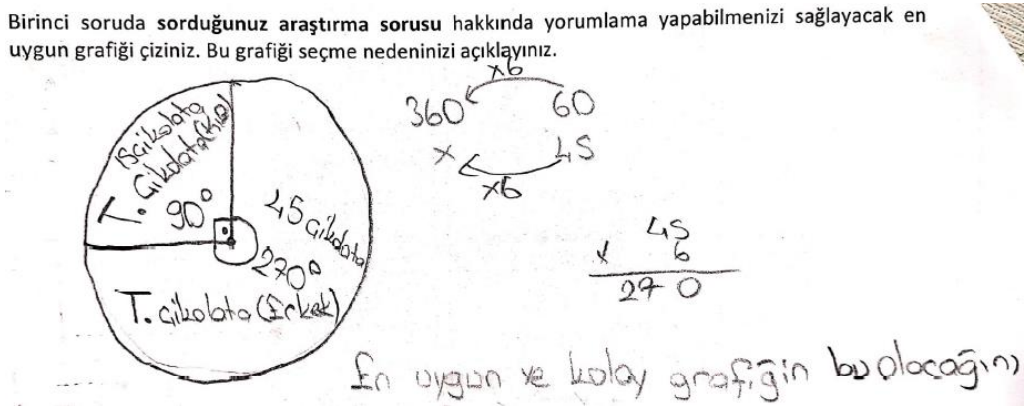 Birinci soruda sorduğunuz araştırma sorusu hakkında yorumlama yapabilmenizi sağlayacak en
uygun grafiği çiziniz. Bu grafiği seçme nedeninizi açıklayınız.
x6
360 60
x 45
x6
15 çikolata
T. Çikolata (Kız)
90°
45 çikolata
270°
T. çikolata (Erkek)
45
x 6
270
En uygun ve kolay grafiğin bu olacağını